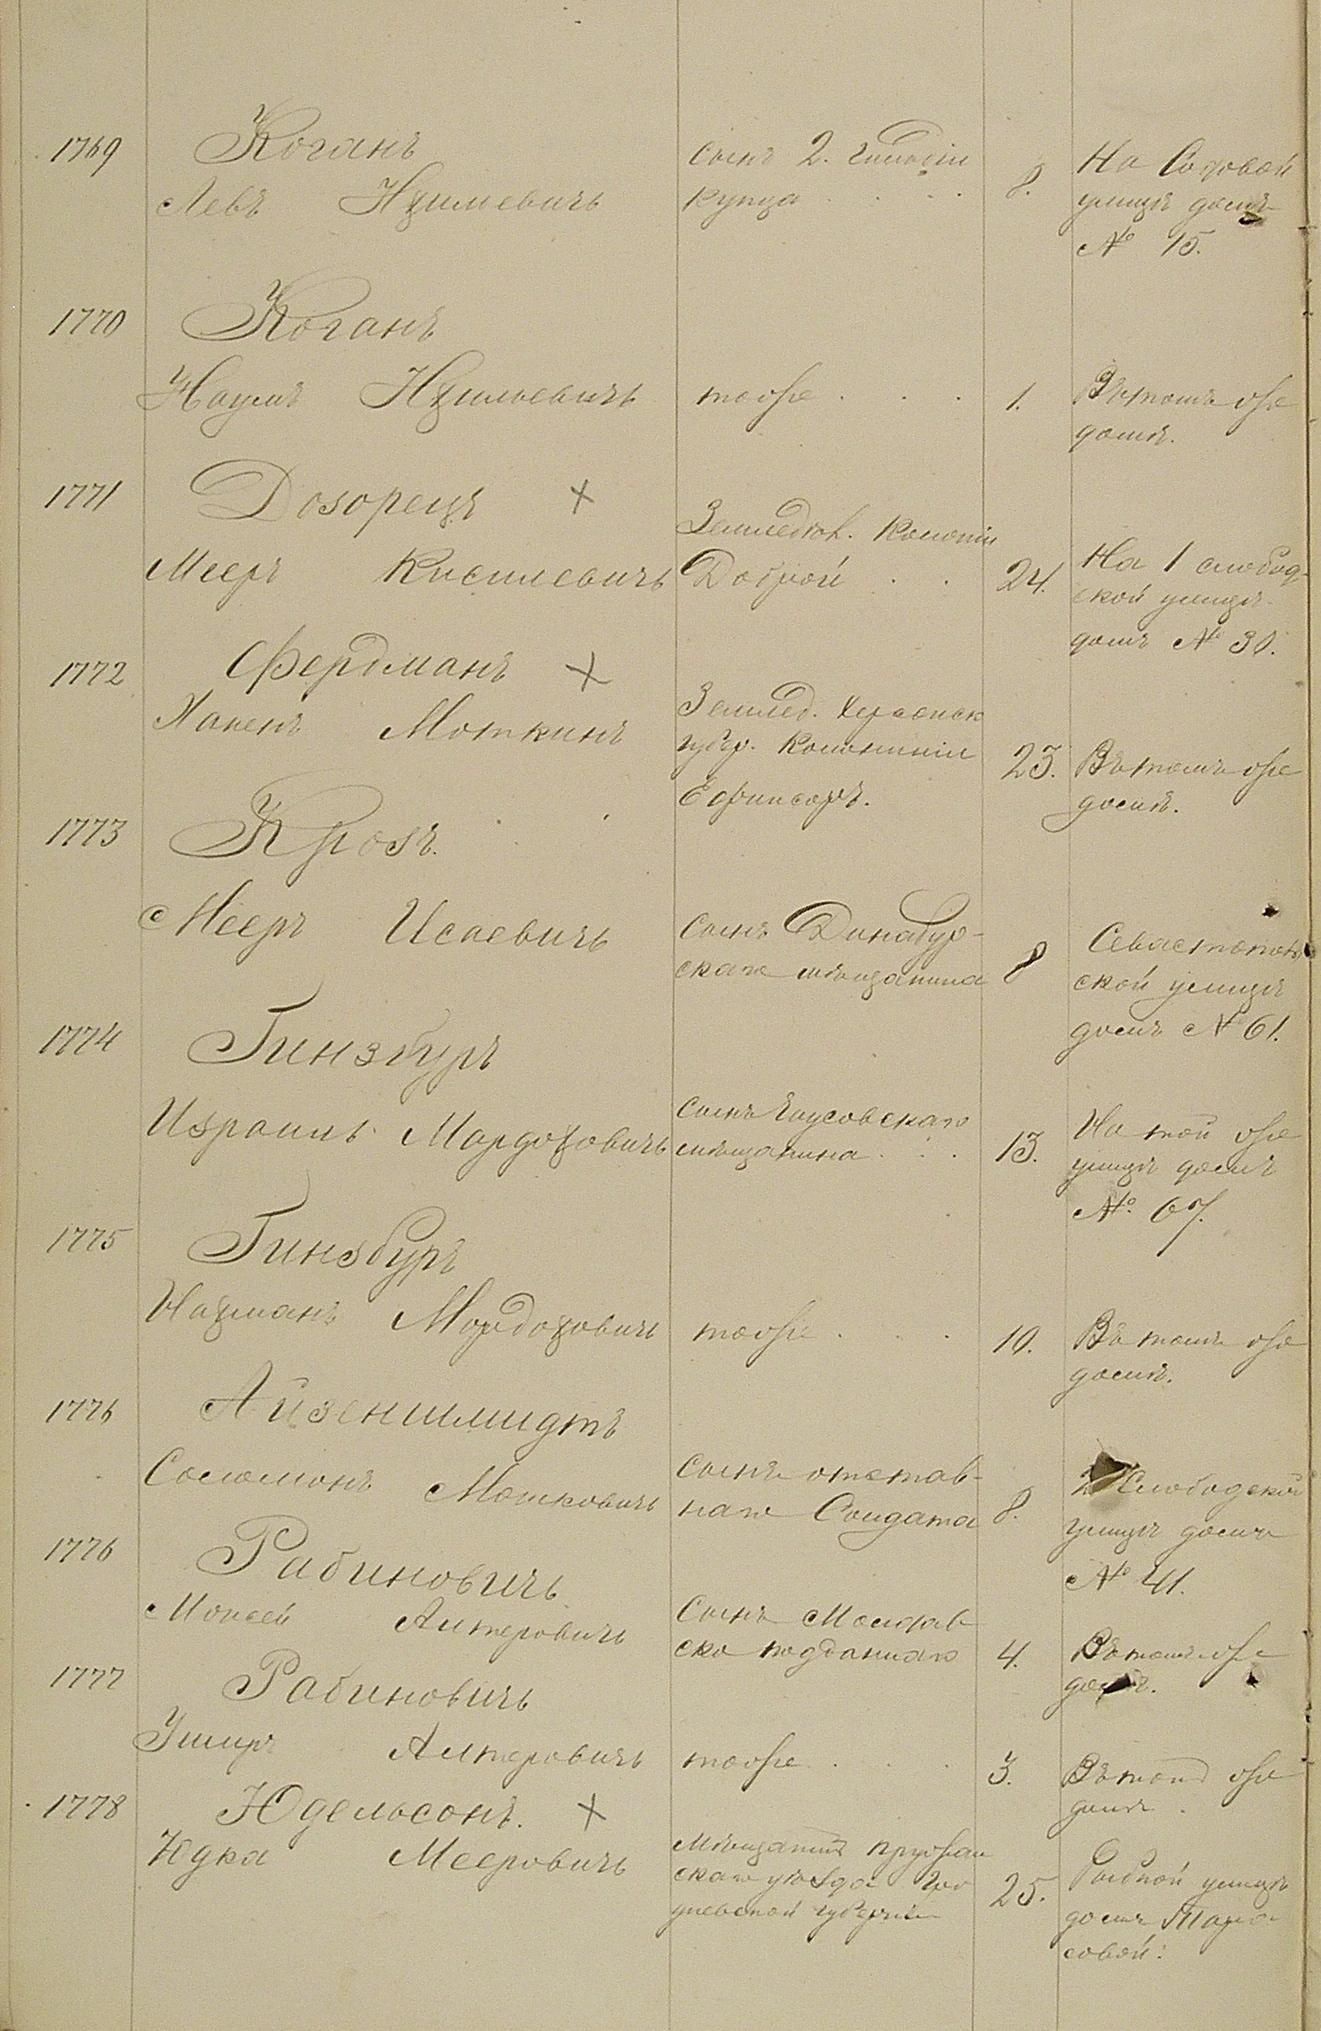 1769 Коганъ
Левъ Хцимевичъ
сынъ 2. гильдіи
купца . . . 8.
На Садовой
улицѣ домъ
№ 15.
1770 Коганъ
Наумъ
тоже . . . 1.
Въ томъ же
домѣ.
1771 Дозорецъ ×
Мееръ Кисилевичъ
Земледѣл. Колоніи
Доброй . . 24.
На 1 слобод-
ской улицѣ
домъ № 30.
1772 Фердманъ ×
Ханенъ Моткинъ
Землед. Херсонск
губер. Колоніи
23.
Въ томъ же
домѣ.
1773 Крозъ.
Мееръ Исаевичъ
сынъ Динабур-
скаго мѣщанина 8
Севастополь
ской улицѣ
домъ № 61.
1774 Гинзбургъ
Израиль Мордоховичъ
сынъ Чаусовскаго
мѣщанина . . . 13.
На той же
улицѣ домъ
№. 67.
1775 Гинзбургъ
Нахманъ Мордоховичъ
тоже . . . 10.
Въ томъ же
домѣ.
1776 Айзеншмидтъ
Соломонъ Мошковичъ
сынъ отстав-
наго Солдата 8.
2 Слободской
улицѣ домъ
№ 41.
1776 Рабиновичъ
Моисей Алтеровичъ
Сынъ Молдав
ско подданнаго 4.
Въ томъ же
домѣ.
1777 Рабиновичъ
Ушеръ Алтеровичъ
тоже . . . 3.
Въ томъ же
домѣ.
1778 Юдельсонъ. ×
Юдка Мееровичъ
Мѣщанинъ Пружан
скаго уѣзда Гро
дненской губерніи
25.
Рыбной улицѣ
домъ Тара
совой.